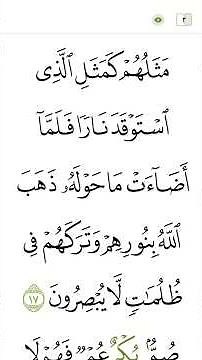 ٢
مَثَلُهُمْ كَمَثَلِ ٱلَّذِى
ٱسْتَوْقَدَ نَارًا فَلَمَّآ
أَضَآءَتْ مَا حَوْلَهُۥ ذَهَبَ
ٱللَّهُ بِنُورِهِمْ وَتَرَكَهُمْ فِى
ظُلُمَٰتٍ لَّا يُبْصِرُونَ ١٧
صُمٌّۢ بُكْمٌ عُمْىٌ فَهُمْ لَا